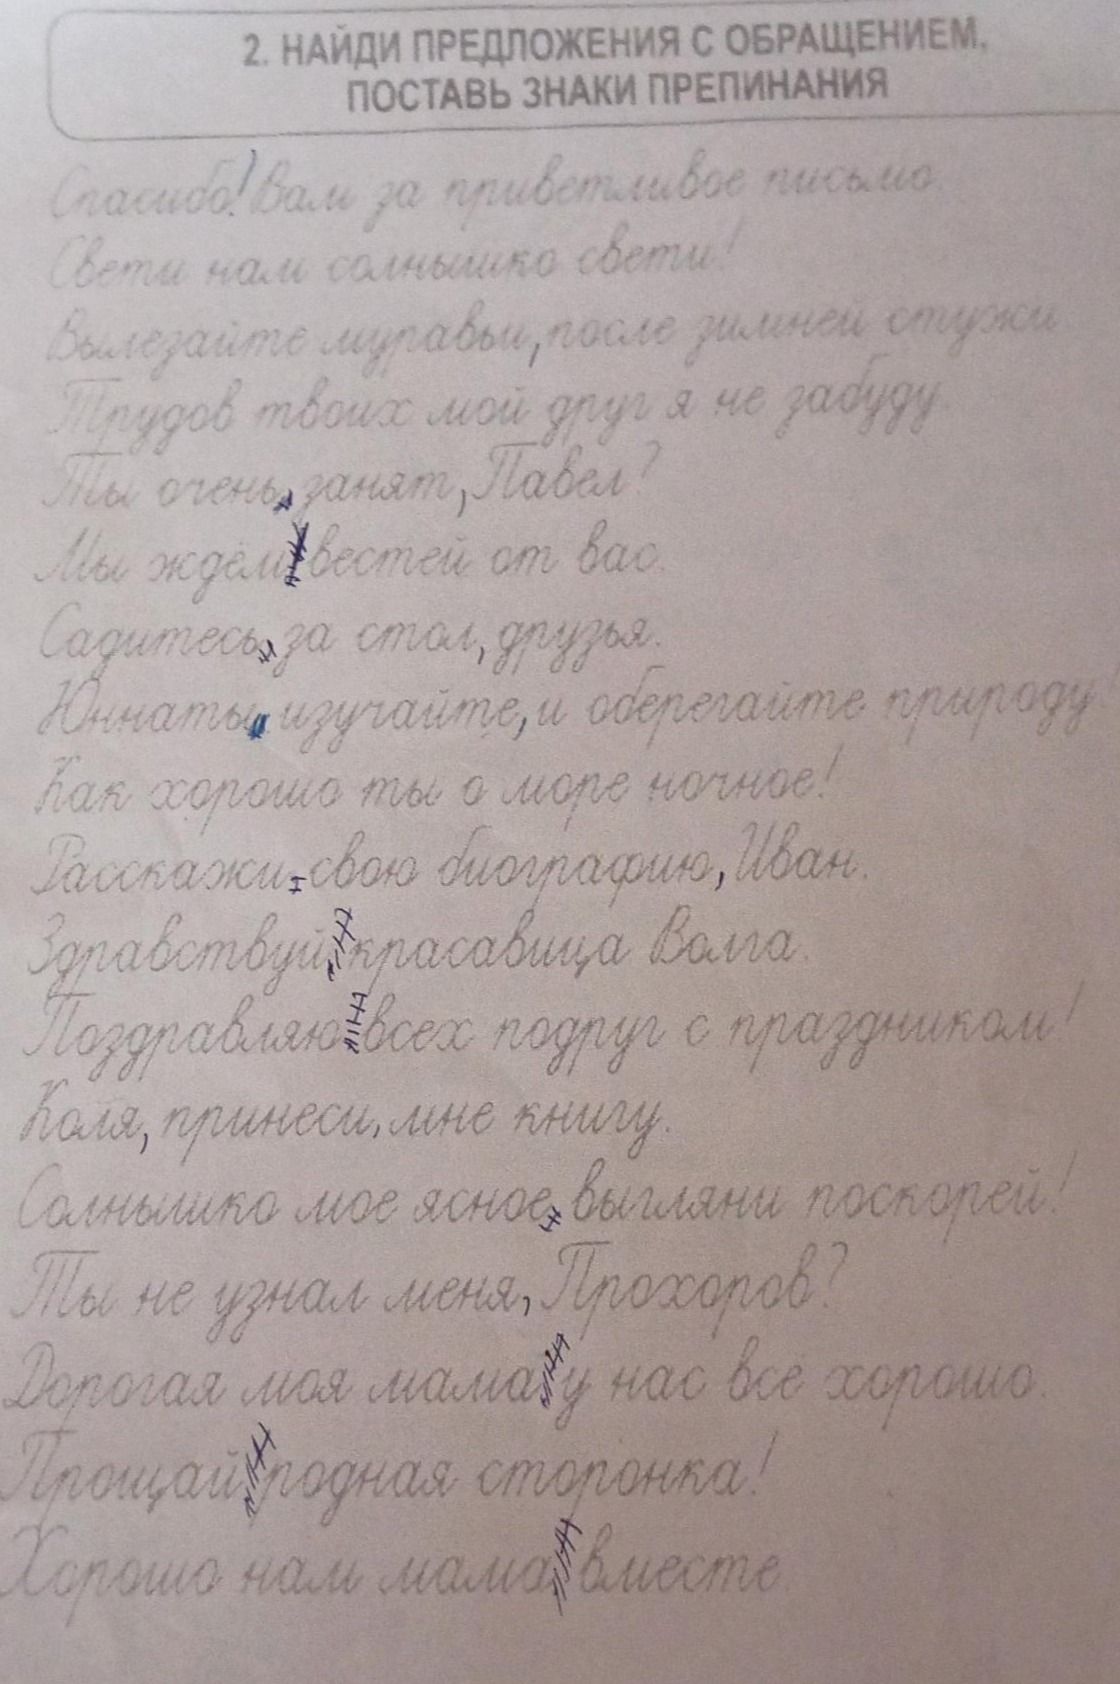 2. НАЙДИ ПРЕДЛОЖЕНИЯ С ОБРАЩЕНИЕМ,
ПОСТАВЬ ЗНАКИ ПРЕПИНАНИЯ
Спасибо! Вам за приветливое письмо.
Свети нам солнышко свети!
Вылезайте муравьи, после зимней стужи
Трудов твоих мой друг я не забуду.
Ты очень, занят, Павел?
Мы ждём вестей от вас.
Садитесь, за стол, друзья.
Юннаты, изучайте, и оберегайте природу!
Как хорошо ты о море ночное!
Расскажи, свою биографию, Иван.
Здравствуй, красавица Волга.
Поздравляю всех подруг с праздником!
Коля, принеси, мне книгу.
Солнышко мое ясное, выгляни поскорей!
Ты не узнал меня, Прохоров?
Дорогая моя мама у нас все хорошо.
Прощай родная сторонка!
Хорошо нам мама вместе.